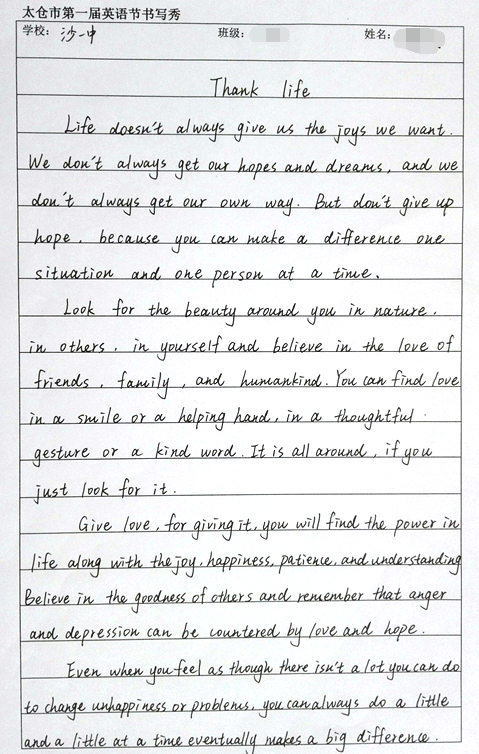 太仓市第一届英语节书写秀
学校: 沙一中 班级: 姓名:
Thank life
Life doesn't always give us the joys we want.
We don't always get our hopes and dreams, and we
don't always get our own way. But don't give up
hope, because you can make a difference one
situation and one person at a time.
Look for the beauty around you in nature,
in others, in yourself and believe in the love of
friends, family, and humankind. You can find love
in a smile or a helping hand, in a thoughtful
gesture or a kind word. It is all around, if you
just look for it.
Give love, for giving it, you will find the power in
life along with the joy, happiness, patience, and understanding
Believe in the goodness of others and remember that anger
and depression can be countered by love and hope.
Even when you feel as though there isn't a lot you can do
to change unhappiness or problems, you can always do a little
and a little at a time eventually makes a big difference.